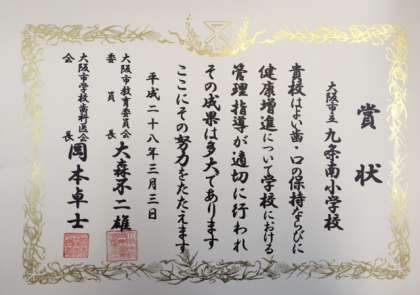 賞状
大阪市立 九条南小学校
貴校はよい歯・口の保持ならびに
健康増進について学校における
管理指導が適切に行われ
その成果は多大であります
ここにその努力をたたえます
平成二十八年三月三日
大阪市教育委員会
委員長 大森不二雄
大阪市学校歯科医会
会長 岡本卓士